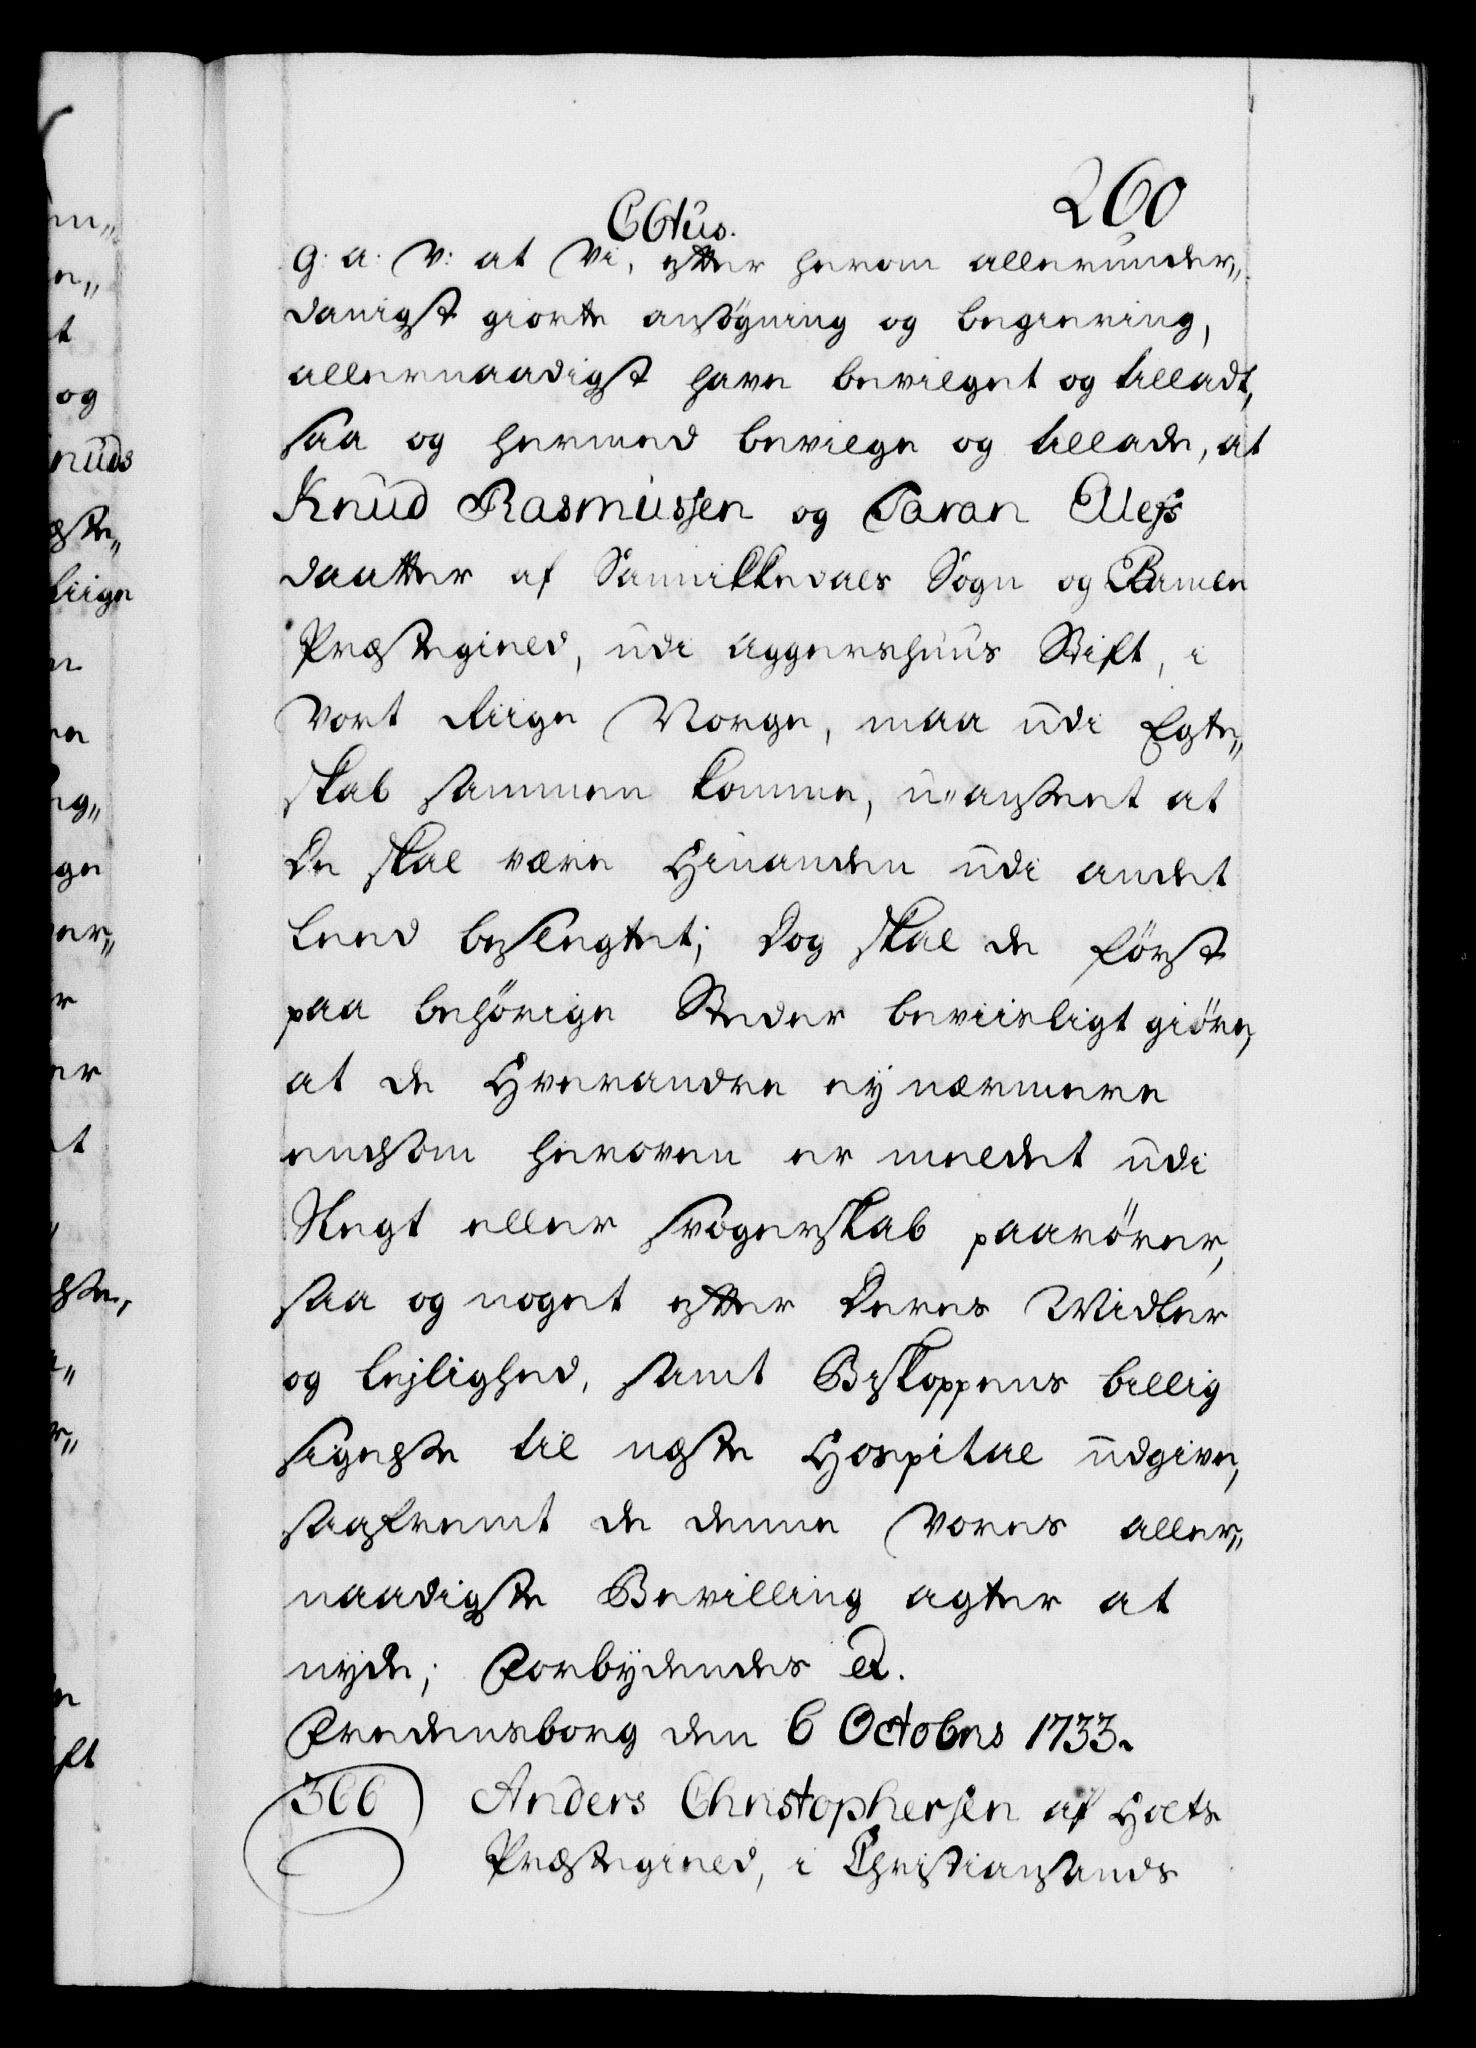 260
C 6tus.
G: A: V: at Vi, efter herom allerunder„
danigst giorte ansøgning og begiering,
allernaadigst have bevilget og tilladt,
saa og hermed bevilge og tillade, at
Knud Rasmussen og Taran Olefs
daatter af Sannikkedals Sogn og Bamle
Præstegield, udi Aggershuus Stift, i
Vort Riige Norge, maa udi Egte„
skab sammen komme, u„anseet at
De skal være Hinanden udi andet
Leed beslegtet; Dog skal de først
paa behörige Steder beviisligt giöre,
at de Hverandre ey nærmere
endsom heroven er meldet udi
Slegt eller Svogerskab paarörer,
saa og noget efter Deres Midler
og lejlighed, samt Biskoppens billig
sigelse til næste Hospital udgive,
saafremt de denne Vores aller„
naadigste Bevilling agter at
nyde; Forbydendes &.
Fredensborg den 6 Octobris 1733.
366 Anders Christophersen af Holts
Præstegield, i Christiansands